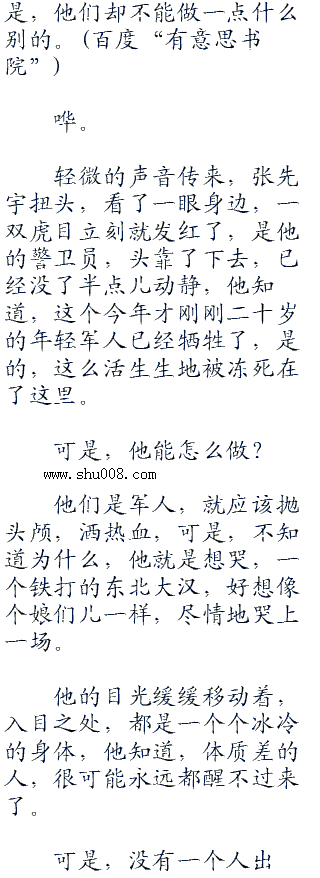 是，他们却不能做一点什么
别的。(百度“有意思书
院”)
哗。
轻微的声音传来，张先
宇扭头，看了一眼身边，一
双虎目立刻就发红了，是他
的警卫员，头靠了下去，已
经没了半点儿动静，他知
道，这个今年才刚刚二十岁
的年轻军人已经牺牲了，是
的，这么活生生地被冻死在
了这里。
可是，他能怎么做？
www.shu008.com
他们是军人，就应该抛
头颅，洒热血，可是，不知
道为什么，他就是想哭，一
个铁打的东北大汉，好想像
个娘们儿一样，尽情地哭上
一场。
他的目光缓缓移动着，
入目之处，都是一个个冰冷
的身体，他知道，体质差的
人，很可能永远都醒不过来
了。
可是，没有一个人出